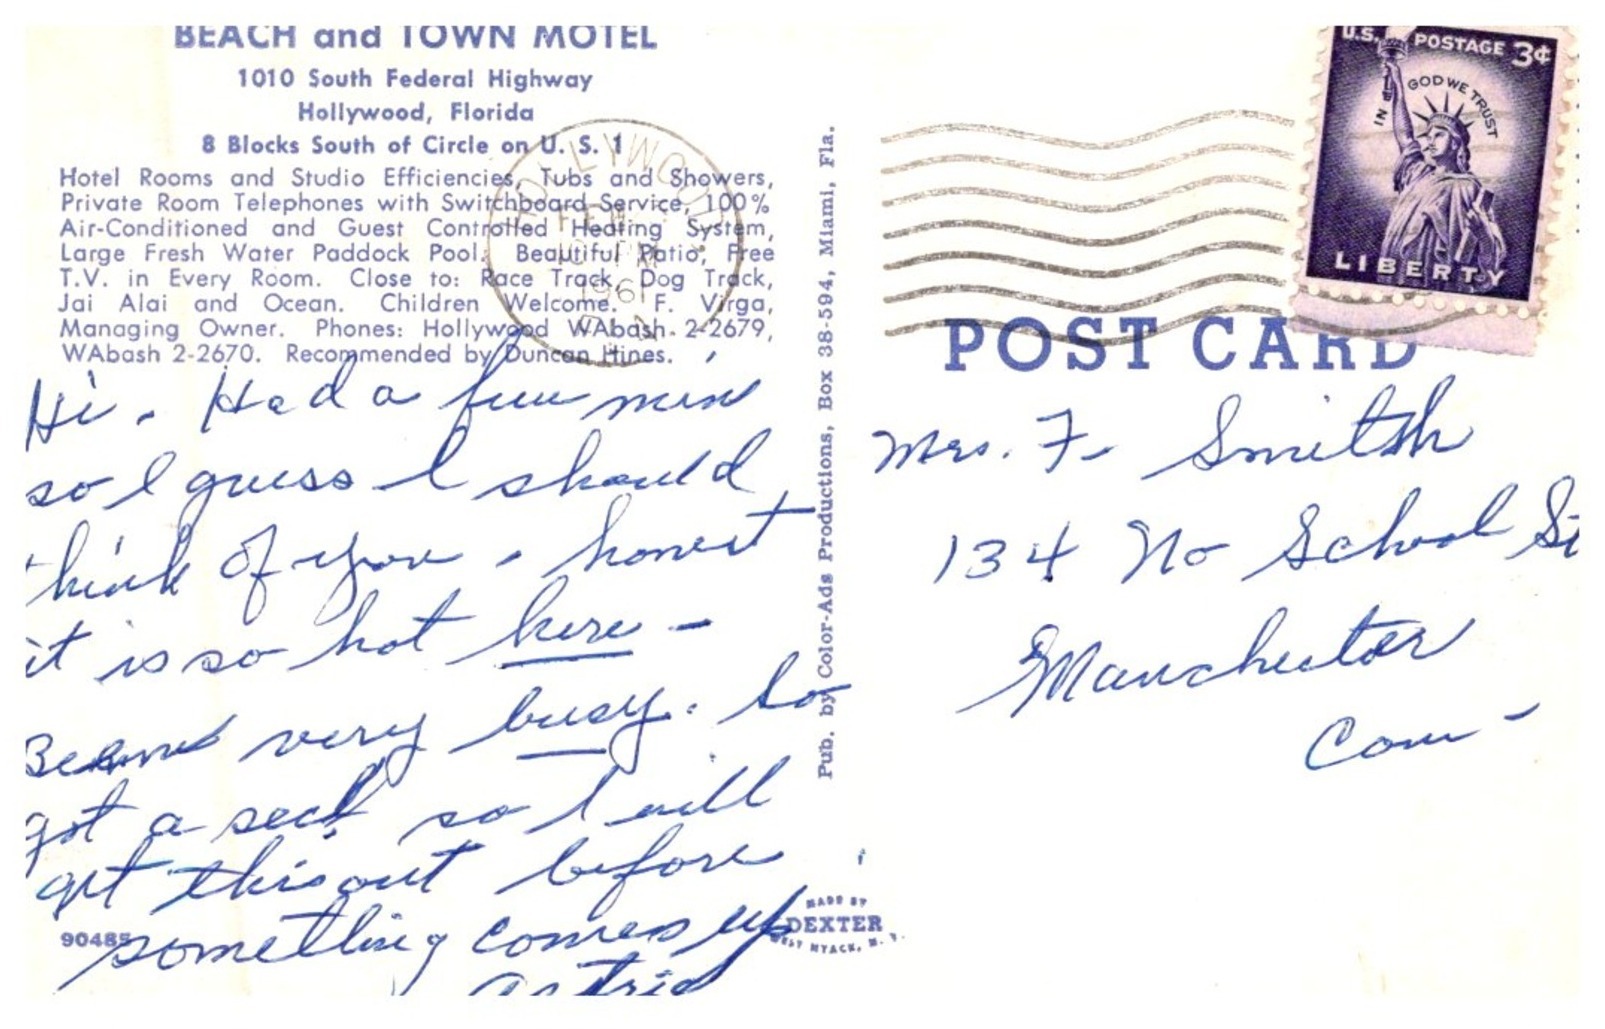 BEACH and TOWN MOTEL
1010 South Federal Highway
Hollywood, Florida
8 Blocks South of Circle on U. S. 1
Hotel Rooms and Studio Efficiencies, Tubs and Showers,
Private Room Telephones with Switchboard Service, 100%
Air-Conditioned and Guest Controlled Heating System,
Large Fresh Water Paddock Pool. Beautiful Patio, Free
T.V. in Every Room. Close to: Race Track, Dog Track,
Jai Alai and Ocean. Children Welcome. F. Virga,
Managing Owner. Phones: Hollywood WAbash 2-2679,
WAbash 2-2670. Recommended by Duncan Hines.
Hi. Had a few min
so I guess I should
think of you. honest
it is so hot here -
very busy. So
got a sec so I will
get this out before
something comes up
Astrid
90485
Pub. by Color-Ads Productions, Box 38-594, Miami, Fla.
MADE BY
DEXTER
WEST NYACK, N. Y.
HOLLYWOOD
FEB
1961
U.S. POSTAGE 3¢
IN GOD WE TRUST
LIBERTY
POST CARD
Mrs. F. Smith
134 No School St
Manchester
Conn